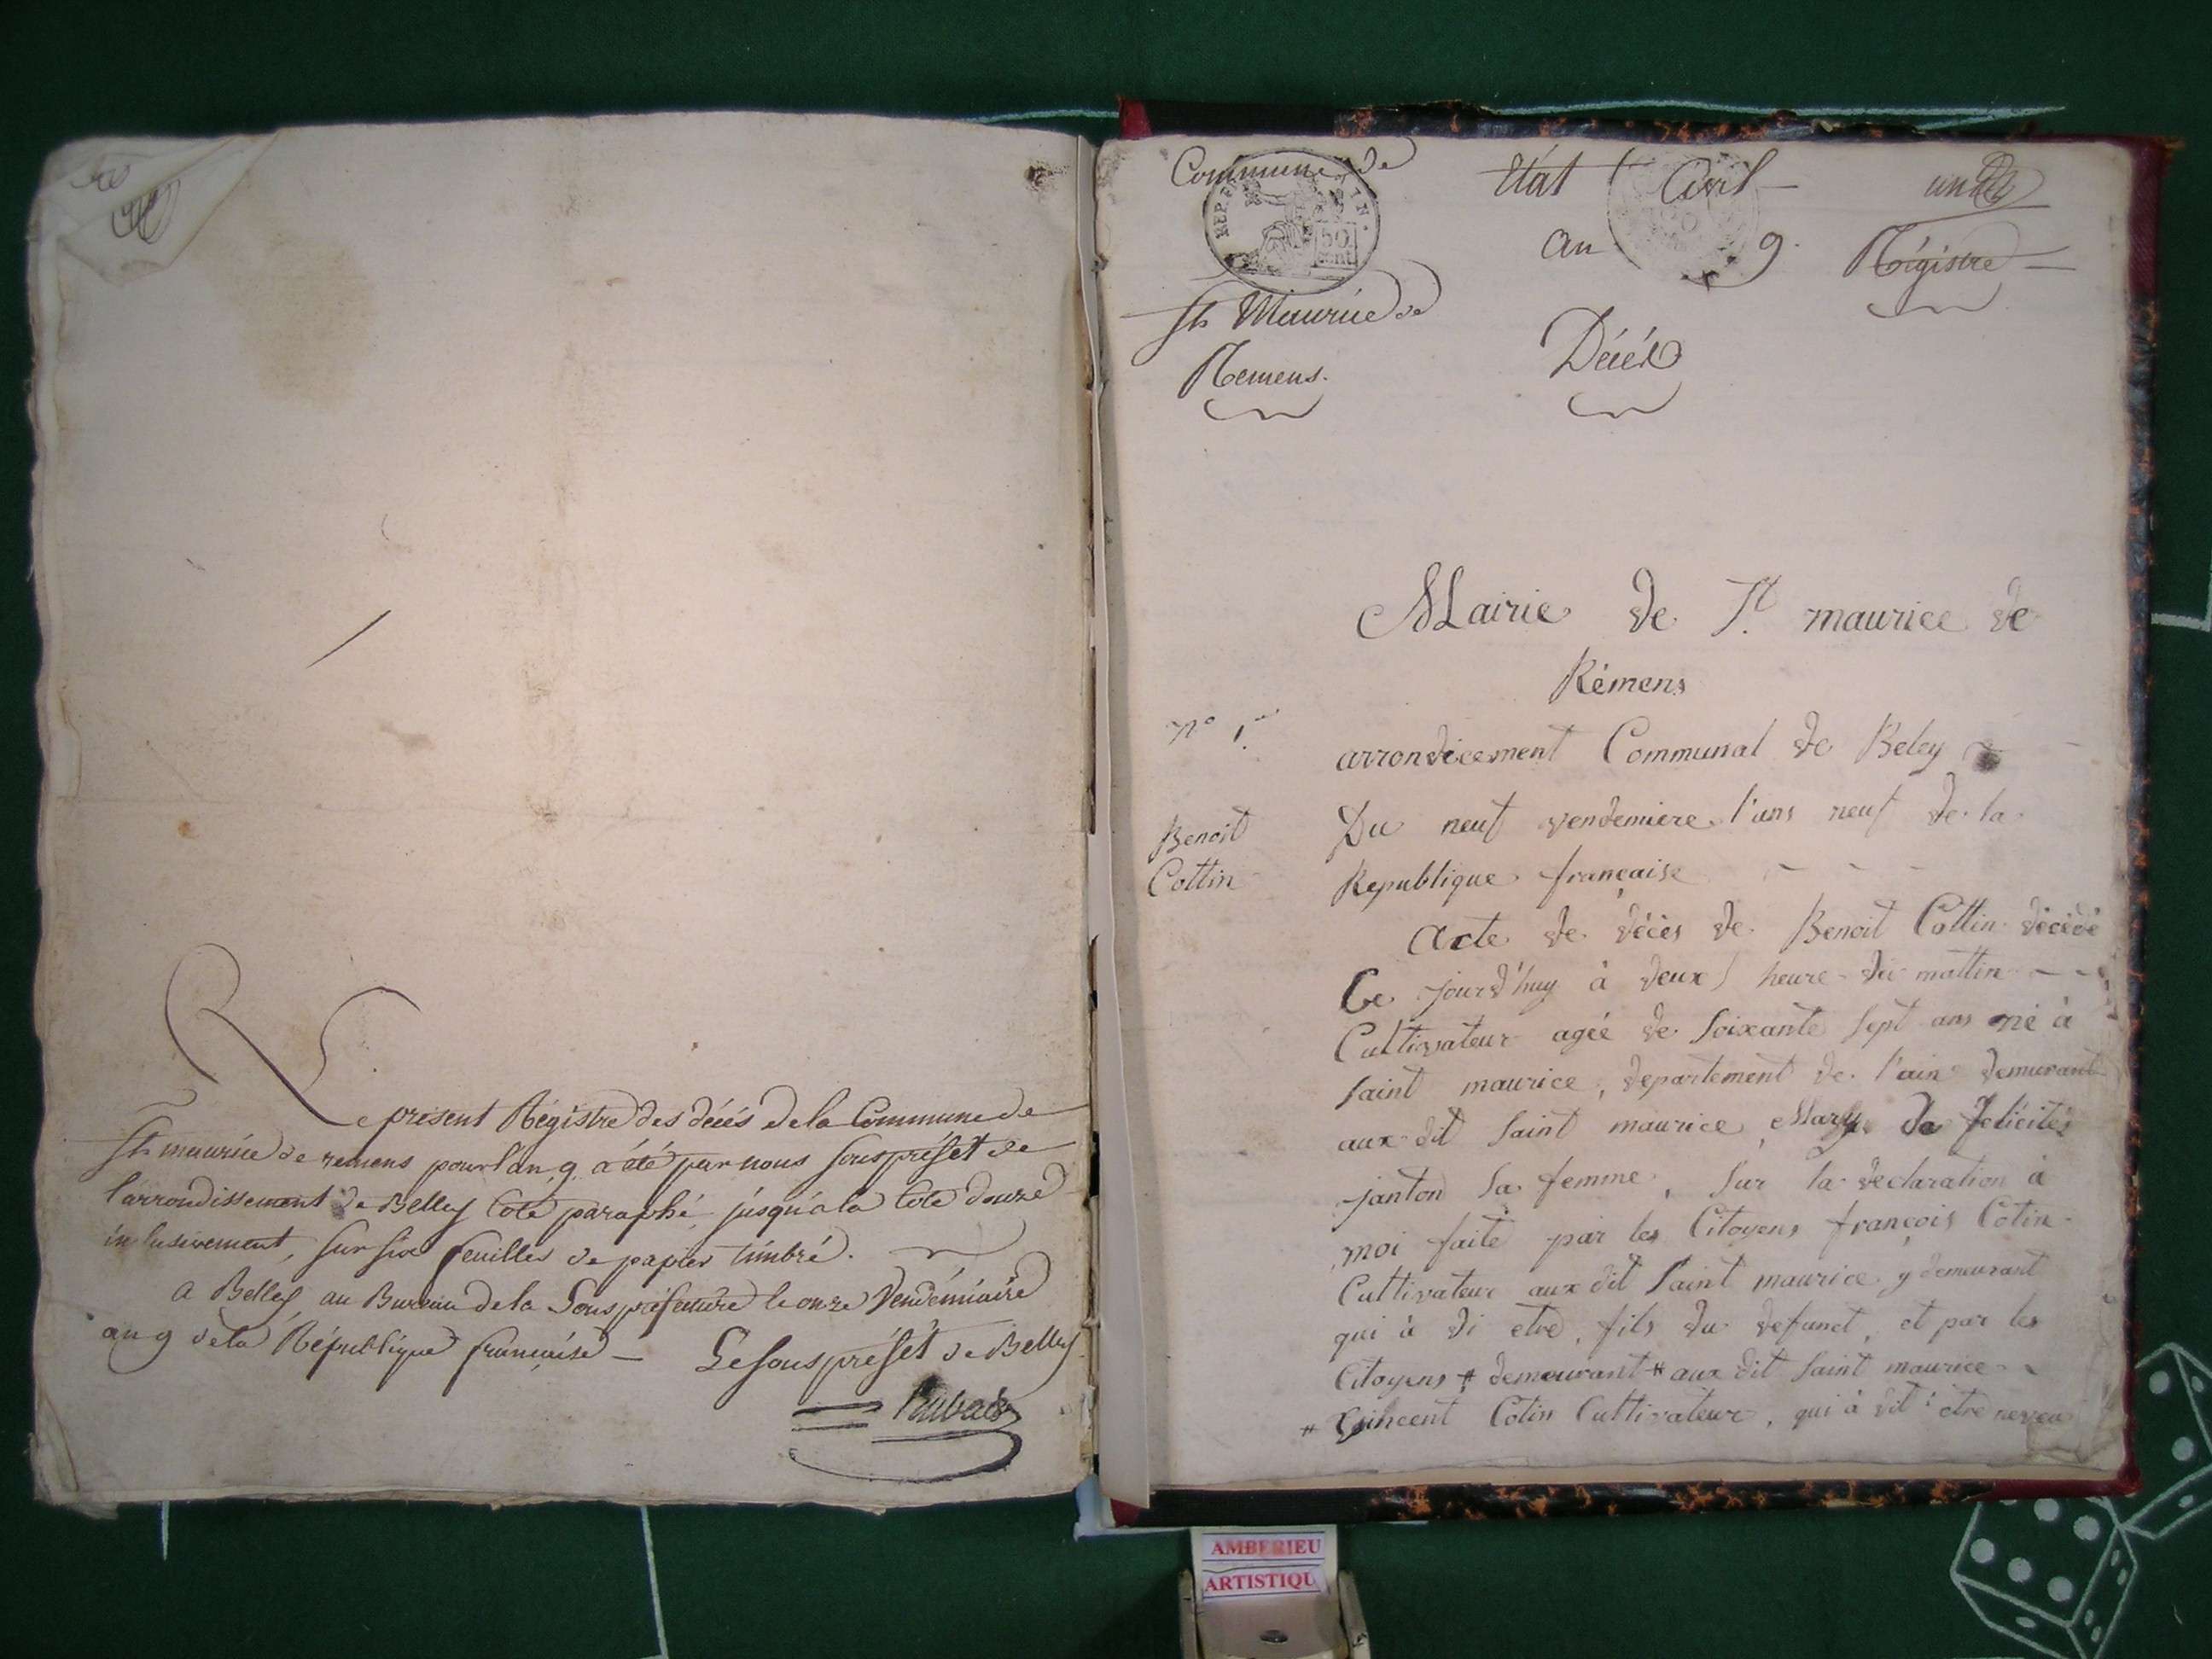 Le present Régistre des décés de la Commune de
St maurice de remens pour l'an 9 a été par nous sous préfet de
l'arrondissement de Belley coté paraphé jusqu'à la cote douze
inclusivement, sur six feuilles de papier timbré.
a Belley, au Bureau de la Sous préfecture le onze Vendémiaire
an 9 de la République française —
Le sous préfet de Belley
Commune de
St Maurice de
Remens.
REP. 
50
cent
Etat Civil —
an 9.
Décés
un
Régistre —
Mairie de St. maurice de
Rémens
n° 1er
arrondicement Communal de Beley
Benoit
Cottin
Du neuf vendemiere l'ans neuf de la
Republique française - - -
Acte de décès de Benoit Cottin décédé
Ce jourd'huy à deux heure du mattin - -
Cultivateur agée de soixante sept ans né à
saint maurice, departement de l'ain demurant
aux dit saint maurice, Marye de Felicité
janton sa femme, sur la declaration à
moi faite par les Citoyens françois Cotin
Cultivateur aux dit saint maurice, y demeurant
qui à di etre, fils du defunct, et par les
Citoyens # demourant # aux dit saint maurice
# Vincent Cotin Cultivateur, qui à dit etre neveu
AMBERIEU
ARTISTIQU